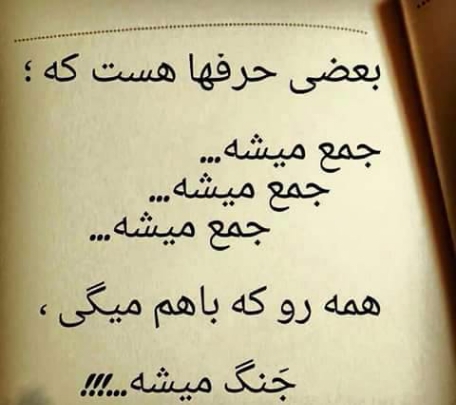 بعضی حرفها هست که ؛
جمع میشه...
جمع میشه...
جمع میشه...
همه رو که باهم میگی ،
جَنگ میشه...!!!